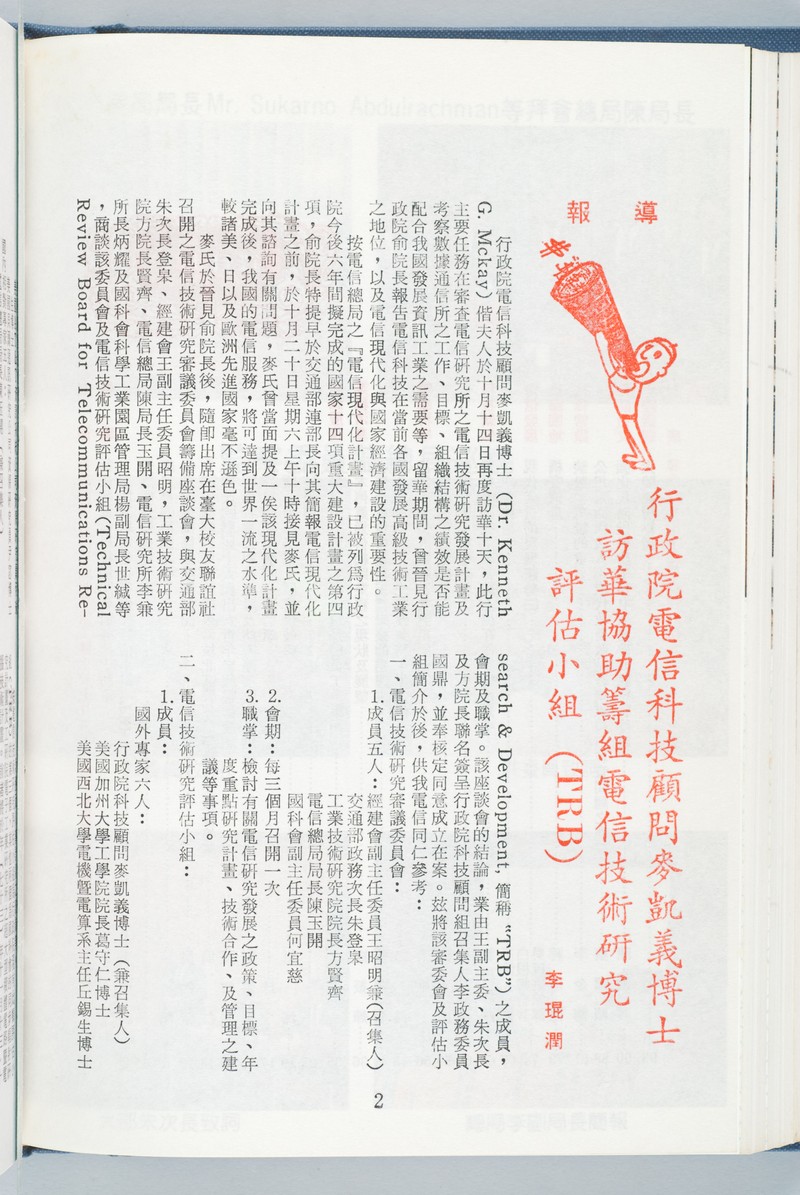 導報
行政院電信科技顧問麥凱義博士
訪華協助籌組電信技術研究
評估小組（TRB）
李琨潤
行政院電信科技顧問麥凱義博士（Dr. Kenneth
G. Mckay）偕夫人於十月十四日再度訪華十天，此行
主要任務在審查電信研究所之電信技術研究發展計畫及
考察數據通信所之工作、目標、組織結構之績效是否能
配合我國發展資訊工業之需要等，留華期間，曾晉見行
政院俞院長報告電信科技在當前各國發展高級技術工業
之地位，以及電信現代化與國家經濟建設的重要性。
按電信總局之『電信現代化計畫』，已被列爲行政
院今後六年間擬完成的國家十四項重大建設計畫之第四
項，俞院長特提早於交通部連部長向其簡報電信現代化
計畫之前，於十月二十日星期六上午十時接見麥氏，並
向其諮詢有關問題，麥氏曾當面提及一俟該現代化計畫
完成後，我國的電信服務，將可達到世界一流之水準，
較諸美、日以及歐洲先進國家毫不遜色。
麥氏於晉見俞院長後，隨即出席在臺大校友聯誼社
召開之電信技術研究審議委員會籌備座談會，與交通部
朱次長登皋、經建會王副主任委員昭明，工業技術研究
院方院長賢齊、電信總局陳局長玉開、電信研究所李兼
所長炳耀及國科會科學工業園區管理局楊副局長世緘等
，商談該委員會及電信技術研究評估小組（Technical
Review Board for Telecommunications Re-
search & Development, 簡稱 “TRB”）之成員，
會期及職掌。該座談會的結論，業由王副主委、朱次長
及方院長聯名簽呈行政院科技顧問組召集人李政務委員
國鼎，並奉核定同意成立在案。玆將該審委會及評估小
組簡介於後，供我電信同仁參考：
一、電信技術研究審議委員會：
1.成員五人：經建會副主任委員王昭明兼（召集人）
交通部政務次長朱登皋
工業技術研究院院長方賢齊
電信總局局長陳玉開
國科會副主任委員何宜慈
2.會期：每三個月召開一次
3.職掌：檢討有關電信研究發展之政策、目標、年
度重點研究計畫、技術合作、及管理之建
議等事項。
二、電信技術研究評估小組：
1.成員：
國外專家六人：
行政院科技顧問麥凱義博士（兼召集人）
美國加州大學工學院院長葛守仁博士
美國西北大學電機暨電算系主任丘錫生博士
2